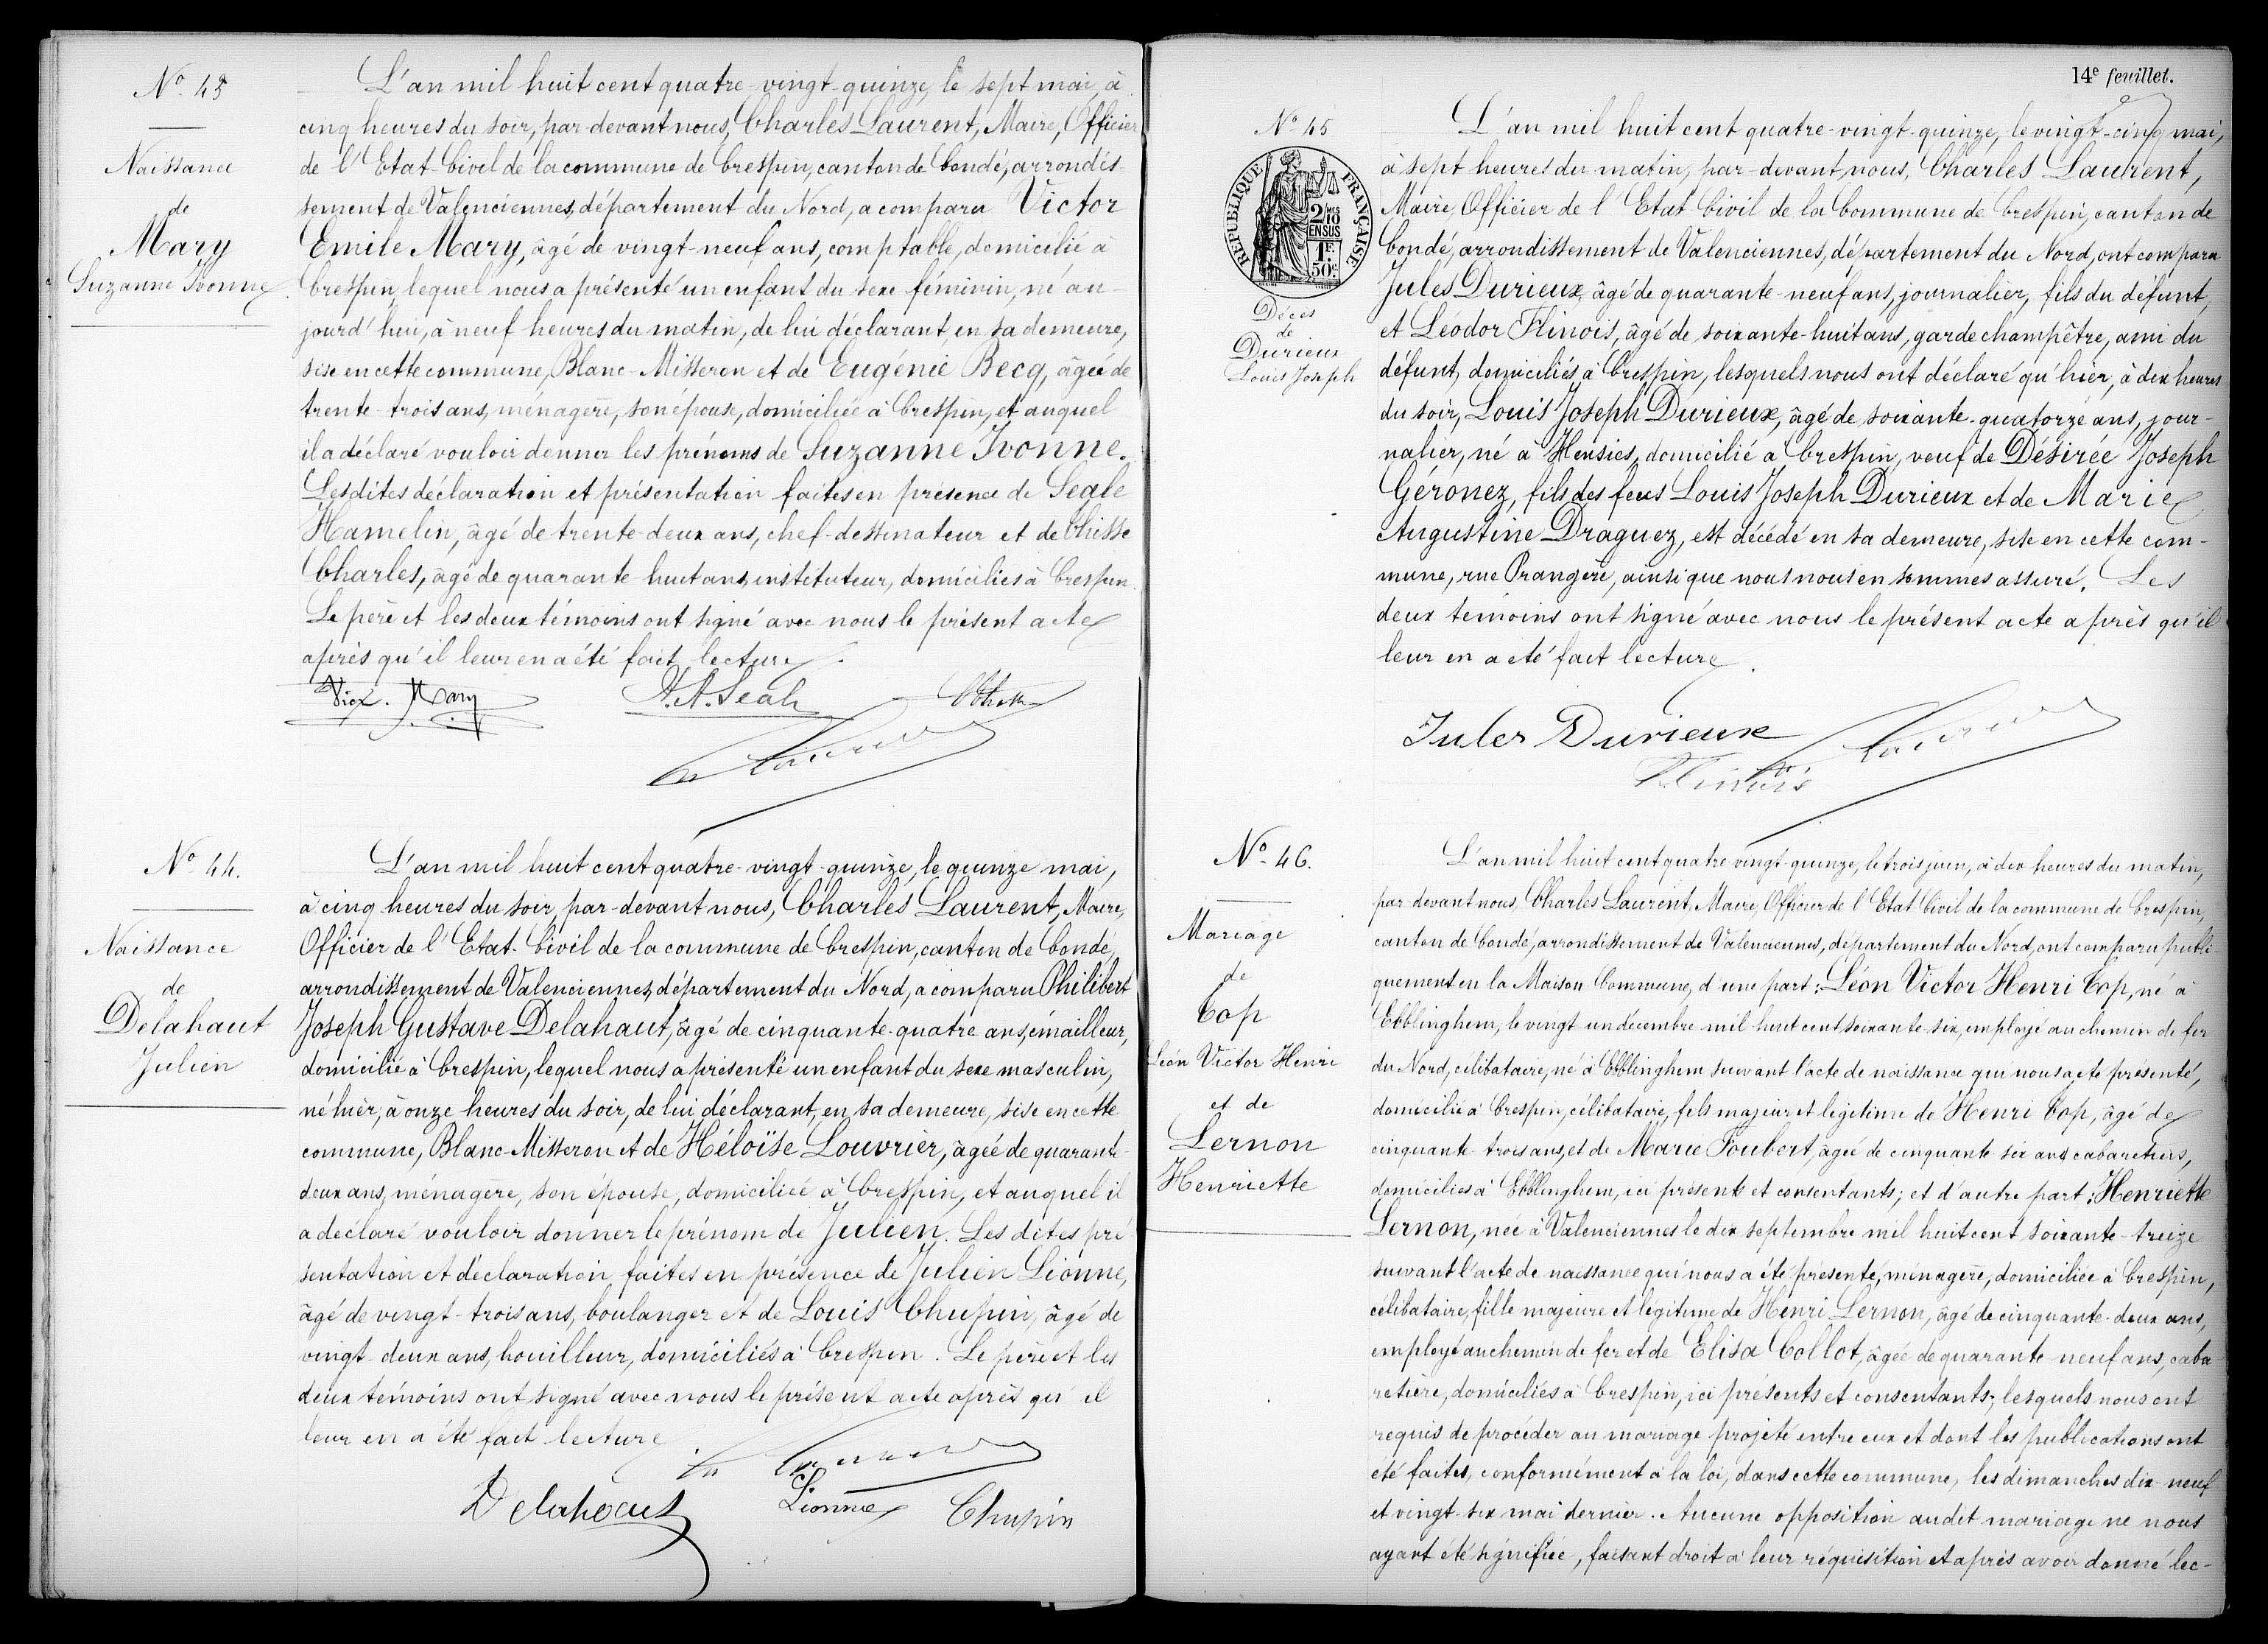 Nº 43
Naissance
de
Mary
Suzanne Ivonne
L'an mil huit cent quatre-vingt-quinze, le sept mai, à
cinq heures du soir, par-devant nous, Charles Laurent, Maire, Officier
de l'Etat-Civil de la commune de Crespin, canton de Condé, arrondis-
sement de Valenciennes, département du Nord, a comparu Victor
Emile Mary, âgé de vingt-neuf ans, comptable, domicilié à
Crespin, lequel nous a présenté un enfant du sexe féminin, né au-
jourd'hui, à neuf heures du matin, de lui déclarant, en sa demeure,
sise en cette commune, Blanc-Misseron et de Eugénie Becq, âgée de
trente-trois ans, ménagère, son épouse, domiciliée à Crespin, et auquel
il a déclaré vouloir donner les prénoms de Suzanne Ivonne.
Lesdites déclaration et présentation faites en présence de Seale
Hamelin, âgé de trente-deux ans, chef-dessinateur et de Chisse
Charles, âgé de quarante-huit ans, instituteur, domiciliés à Crespin.
Le père et les deux témoins ont signé avec nous le présent acte
après qu'il leur en a été fait lecture.
Vict. Mary H.A. Seale
Nº 44.
Naissance
de
Delahaut
Julien
L'an mil huit cent quatre-vingt-quinze, le quinze mai,
à cinq heures du soir, par-devant nous, Charles Laurent, Maire,
Officier de l'Etat-Civil de la commune de Crespin, canton de Condé,
arrondissement de Valenciennes, département du Nord, a comparu Philibert
Joseph Gustave Delahaut, âgé de cinquante-quatre ans, émailleur,
domicilié à Crespin, lequel nous a présenté un enfant du sexe masculin,
né hier, à onze heures du soir, de lui déclarant, en sa demeure, sise en cette
commune, Blanc-Misseron et de Héloïse Louvrier, âgée de quarante-
deux ans, ménagère, son épouse, domiciliée à Crespin, et auquel il
a déclaré vouloir donner le prénom de Julien. Les dites pré
sentation et déclaration faites en présence de Julien Lionne,
âgé de vingt-trois ans, boulanger et de Louis Chupin, âgé de
vingt-deux ans, houilleur, domiciliés à Crespin. Le père et les
deux témoins ont signé avec nous le présent acte après qu'il
leur en a été fait lecture.
Delahaut Lionne Chupin
14e feuillet.
Nº 45
REPUBLIQUE FRANÇAISE
2 DMES 10
EN SUS
1F.
50c.
Décès
de
Durieux
Louis Joseph
L'an mil huit cent quatre-vingt-quinze, le vingt-cinq mai,
à sept heures du matin, par-devant nous, Charles Laurent,
Maire, Officier de l'Etat Civil de la Commune de Crespin, canton de
Condé, arrondissement de Valenciennes, département du Nord, ont comparu
Jules Durieux, âgé de quarante-neuf ans, journalier, fils du défunt,
et Léodor Flinois, âgé de soixante-huit ans, garde champêtre, ami du
défunt, domiciliés à Crespin, lesquels nous ont déclaré qu'hier, à dix heures
du soir, Louis Joseph Durieux, âgé de soixante-quatorze ans, jour-
nalier, né à Hensies, domicilié à Crespin, veuf de Désirée Joseph
Géronez, fils des feus Louis Joseph Durieux et de Marie
Augustine Draguez, est décédé en sa demeure, sise en cette com-
mune, rue Orangère, ainsi que nous nous en sommes assuré. Les
deux témoins ont signé avec nous le présent acte après qu'il
leur en a été fait lecture.
Jules Durieux
Flinois
Nº 46.
Mariage
de
Cop
Léon Victor Henri
et de
Lernon
Henriette
L'an mil huit cent quatre-vingt-quinze, le trois juin, à dix heures du matin,
par-devant nous, Charles Laurent, Maire, Officier de l'Etat Civil de la commune de Crespin,
canton de Condé, arrondissement de Valenciennes, département du Nord, ont comparu publi-
quement en la Maison Commune, d'une part: Léon Victor Henri Cop, né à
Ebblinghem, le vingt un décembre mil huit cent soixante-six, employé au chemin de fer
du Nord, célibataire, né à Ebblinghem suivant l'acte de naissance qui nous a été présenté,
domicilié à Crespin, célibataire, fils majeur et légitime de Henri Cop, âgé de
cinquante-trois ans, et de Marie Foubert, âgée de cinquante-six ans, cabaretiers,
domiciliés à Ebblinghem, ici présents et consentants; et d'autre part: Henriette
Lernon, née à Valenciennes le dix septembre mil huit cent soixante-treize
suivant l'acte de naissance qui nous a été présenté, ménagère, domiciliée à Crespin,
célibataire, fille majeure et légitime de Henri Lernon, âgé de cinquante-deux ans,
employé au chemin de fer et de Elisa Collot, âgée de quarante neuf ans, caba-
retière, domiciliés à Crespin, ici présents et consentants; lesquels nous ont
requis de procéder au mariage projeté entre eux et dont les publications ont
été faites, conformément à la loi, dans cette commune, les dimanches dix-neuf
et vingt-six mai dernier. Aucune opposition audit mariage ne nous
ayant été signifiée, faisant droit à leur réquisition et après avoir donné lec-